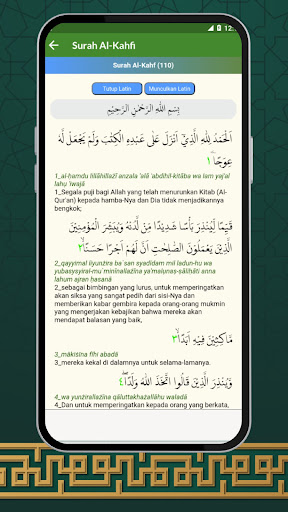 12:30
Surah Al-Kahfi
Surah Al-Kahf (110)
Tutup Latin
Munculkan Latin
بِسْمِ اللّٰهِ الرَّحْمٰنِ الرَّحِيْمِ
اَلْحَمْدُ لِلّٰهِ الَّذِيْٓ اَنْزَلَ عَلٰى عَبْدِهِ الْكِتٰبَ وَلَمْ يَجْعَلْ لَّهٗ
عِوَجًاۜ ١
1_al-ḥamdu lillāhillażī anzala 'alā 'abdihil-kitāba wa lam yaj'al
lahụ 'iwajā
1_Segala puji bagi Allah yang telah menurunkan Kitab (Al-
Qur'an) kepada hamba-Nya dan Dia tidak menjadikannya
bengkok;
قَيِّمًا لِّيُنْذِرَ بَأْسًا شَدِيْدًا مِّنْ لَّدُنْهُ وَيُبَشِّرَ الْمُؤْمِنِيْنَ
الَّذِيْنَ يَعْمَلُوْنَ الصّٰلِحٰتِ اَنَّ لَهُمْ اَجْرًا حَسَنًاۙ ٢
2_qayyimal liyunżira ba`san syadīdam mil ladun-hu wa
yubasysyiral-mu`minīnallażīna ya'malụnaṣ-ṣāliḥāti anna
lahum ajran ḥasanā
2_sebagai bimbingan yang lurus, untuk memperingatkan
akan siksa yang sangat pedih dari sisi-Nya dan
memberikan kabar gembira kepada orang-orang mukmin
yang mengerjakan kebajikan bahwa mereka akan
mendapat balasan yang baik,
مَّاكِثِيْنَ فِيْهِ اَبَدًاۙ ٣
3_mākiṡīna fīhi abadā
3_mereka kekal di dalamnya untuk selama-lamanya.
وَّيُنْذِرَ الَّذِيْنَ قَالُوا اتَّخَذَ اللّٰهُ وَلَدًاۖ ٤
4_wa yunżirallażīna qāluttakhażallāhu waladā
4_Dan untuk memperingatkan kepada orang yang berkata,